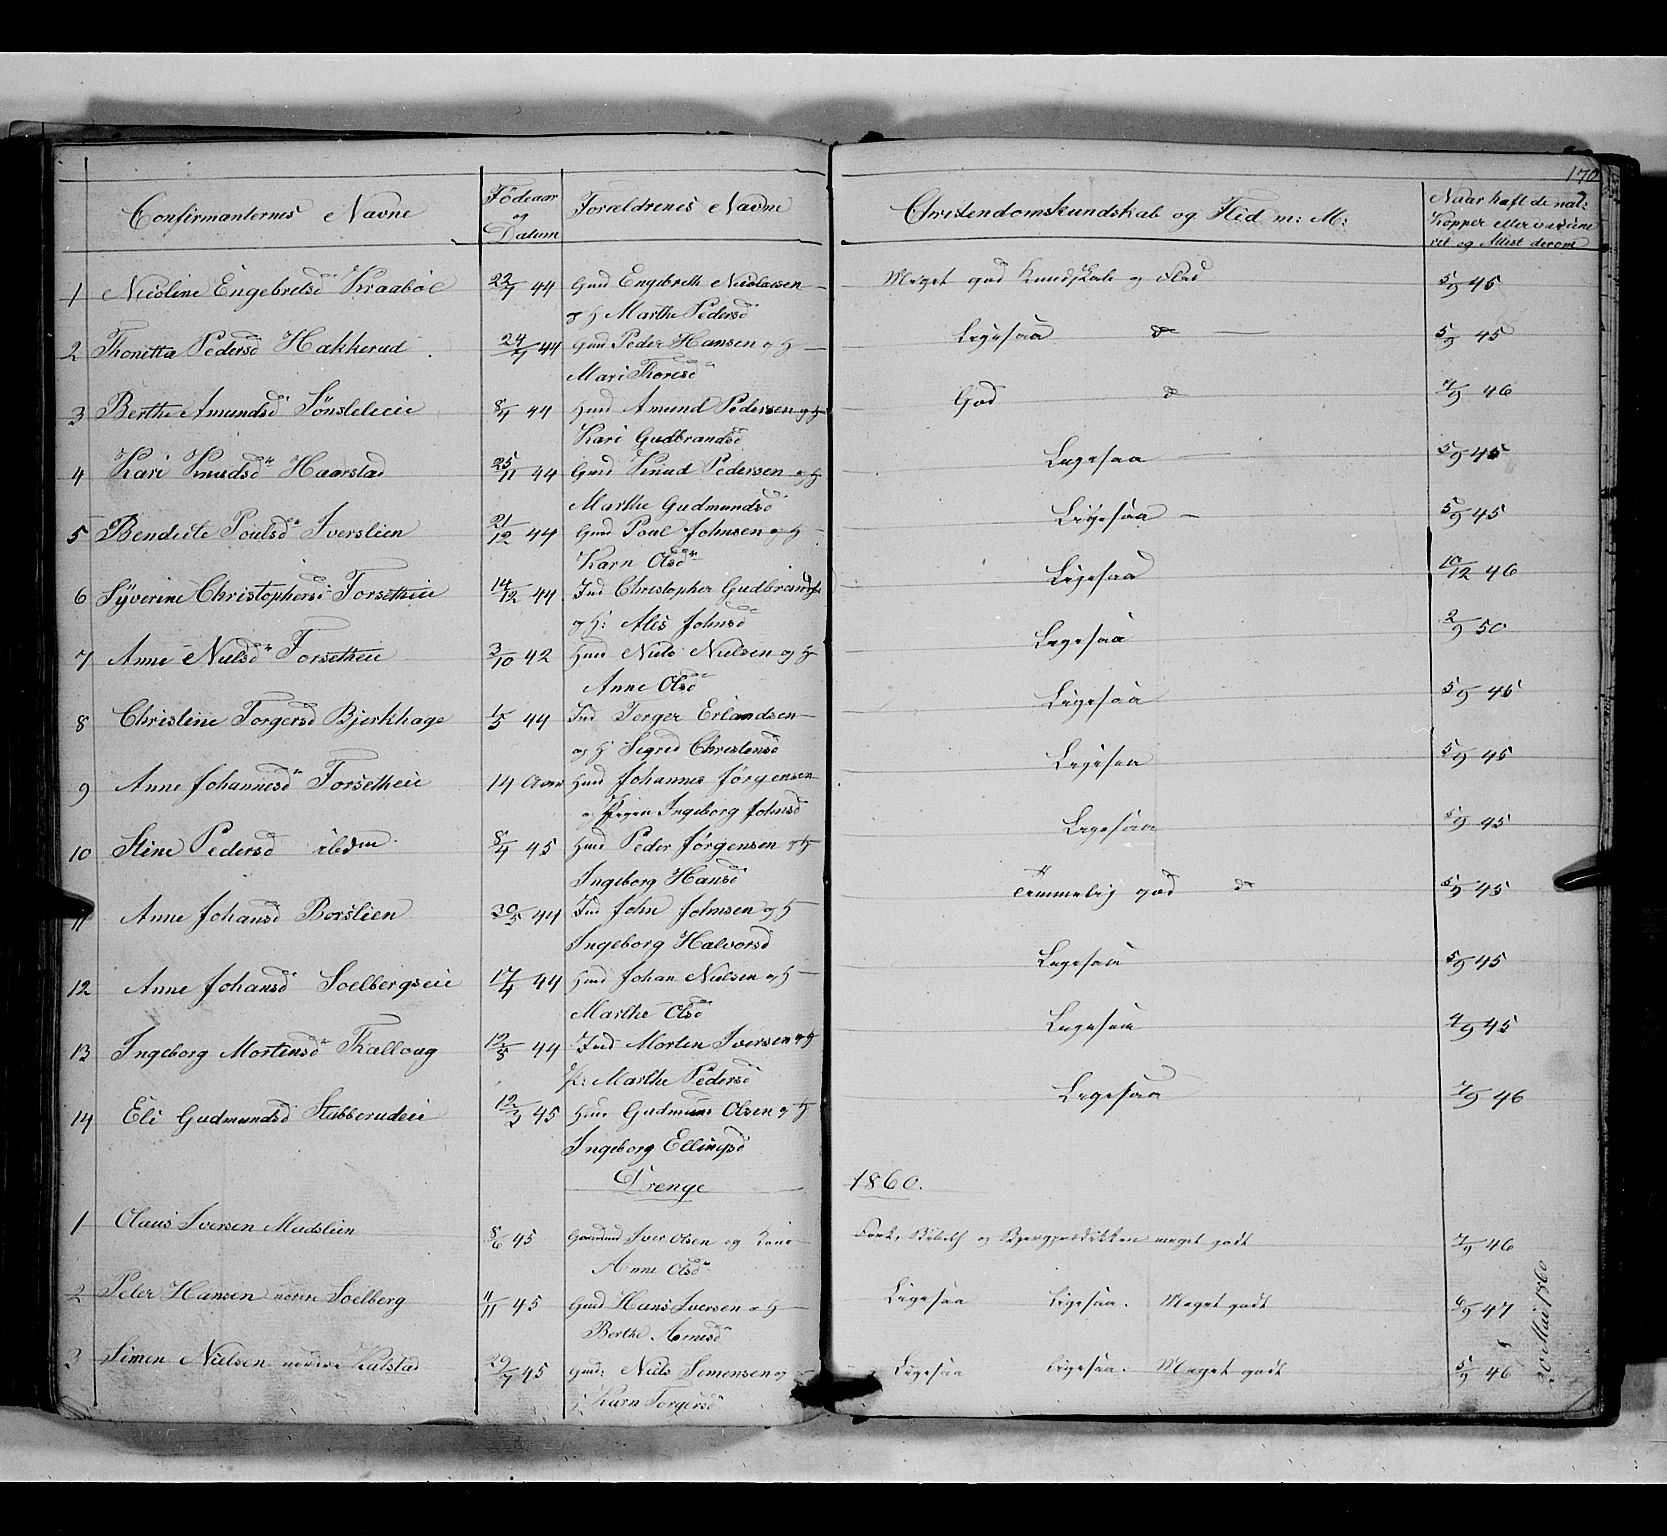 170
Confirmanternes Navne Födeaar og Datum Forældrenes Navne Christendomskundskab og Flid m: M: Naar haft de nat: Kopper eller vaccineret og Attest derom
1 Nicoline Engebretsd Kraaböl 22/7 44 Gmd Engebreth Nicolaisen Meget god Kundskab og Flid 5/9 45
og H Marthe Pedersd
2 Thonette Pedersd Hakkerud 24/7 44 Gmd Peder Hansen og H Ligesaa do 5/9 45
Mari Thoresd
3 Berthe Amundsd Sönsteleie 8/7 44 Hmd Amund Pedersen og H God d 7/9 46
Kari Gudbrandsd
4 Kari Knudsd Haarstad 25/11 44 Gmd Knud Pedersen og H Ligesaa 5/9 45
Marthe Gudmundsd
5 Bendicte Poulsd Iverslien 21/12 44 Gmd Poul Johnsen og H Ligesaa 5/9 45
Karn Olsd
6 Syverine Christophersd Forsetheie 14/12 44 Ind Christopher Gudbrands Ligesaa 10/12 46
og H: Alis Johnsd
7 Anne Nielsd Forsetheie 3/10 42 Hmd Niels Nielsen og H Ligesaa 2/9 50
Anne Olsd
8 Christine Torgersd Bjerkhage 1/5 44 Ind Torger Erlandsen Ligesaa 5/9 45
og H Sigrid Christensd
9 Anne Johannesd Forsetheie 14 Aar Hmd Johannes Jørgensen Ligesaa 5/9 45
og Pigen Ingeborg Johnsd
10 Stine Pedersd ibdm 8/4 45 Hmd Peder Jørgensen og H Ligesaa 5/9 45
Ingeborg Hansd
11 Anne Johansd Borslien 30/5 44 Ind John Johnsen og H Temmelig god do 5/9 45
Ingeborg Halvorsd
12 Anne Johansd Soelbergseie 17/4 44 Hmd Johan Nielsen og H Ligesaa 5/9 45
Marthe Olsd
13 Ingeborg Mortensd Kalloug 12/5 44 Ind Morten Iversen og H Ligesaa 4/9 45
K: Marthe Pedersd
14 Eli Gudmundsd Stubberudeie 12/3 45 Hmd Gudmund Olsen og H Ligesaa 7/9 46
Ingeborg Ellingsd
Drenge 1860.
1 Claus Iversen Mudslien 8/6 45 Gaardmd Iver Olsen og Kone Fork, Bibelh og Bjergprædikken meget godt 7/9 46
Anne Olsd
2 Peter Hansen nerre Soelberg 11/11 45 Gmd Hans Iversen og H Ligesaa Ligesaa. Meget godt 6/9 47
Berthe Arnesd
3 Simen Nielsen nerdre Kalstad 29/7 45 Gmd: Niels Simensen og Ligesaa Ligesaa. Meget godt 5/9 46
H Karn Torgersd
20 Mai 1860